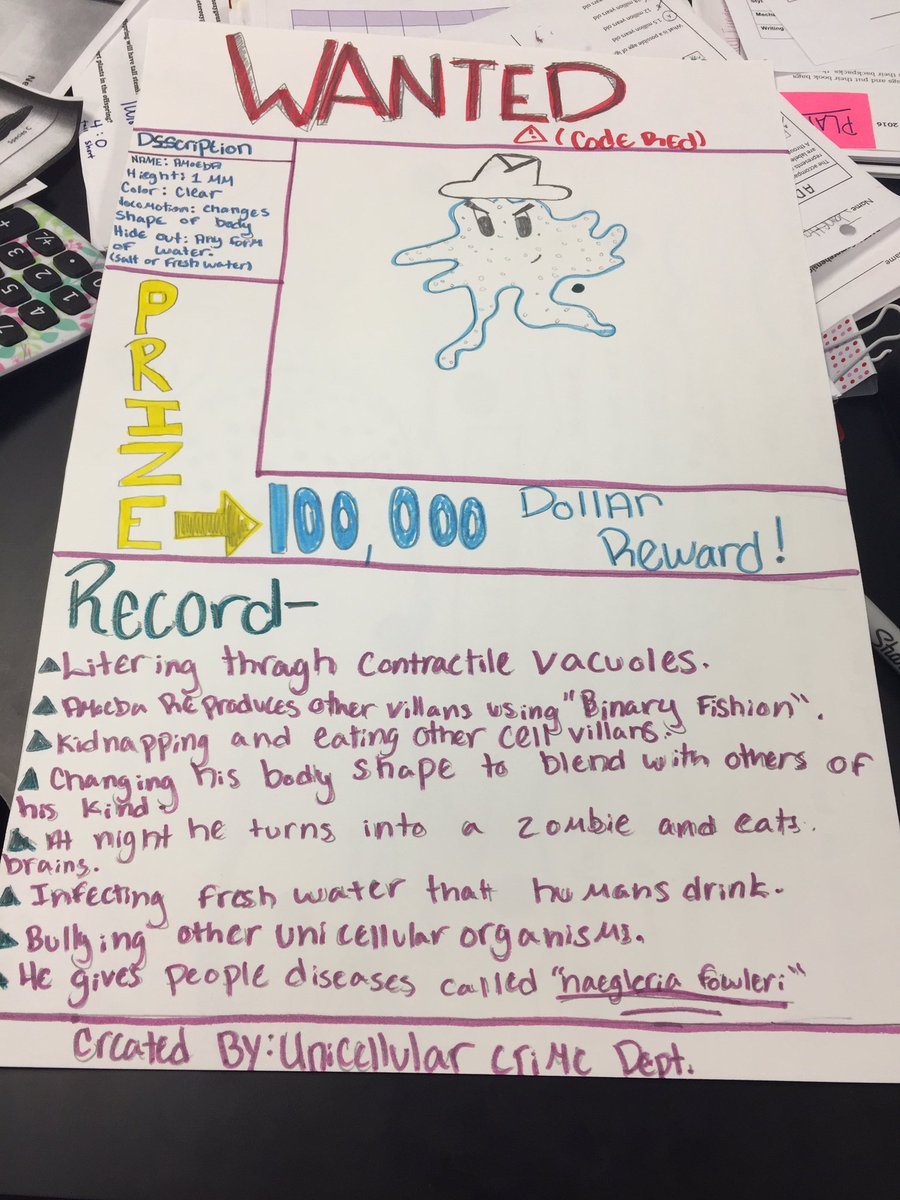 WANTED
(Code Red)
Description
NAME: AMOEBA
Hieght: 1 MM
Color: Clear
locoMotion: Changes
Shape of body
Hide out: Any form
of water.
(Salt or Fresh water)
PRIZE
100,000 Dollar
Reward!
Record-
Litering thragh contractile vacuoles.
AMoeba REproduces other villans using "Binary Fishion".
Kidnapping and eating other cell villans.
Changing his body shape to blend with others of
his kind.
At night he turns into a zombie and eats
brains.
Infecting fresh water that humans drink.
Bullying other unicellular organisms.
He gives people diseases called "naegleria fowleri"
Created By: Unicellular CriMe Dept.
PLA
2016
Name
Writing
4:0
Short
+/-
+
5
2
4
1
7